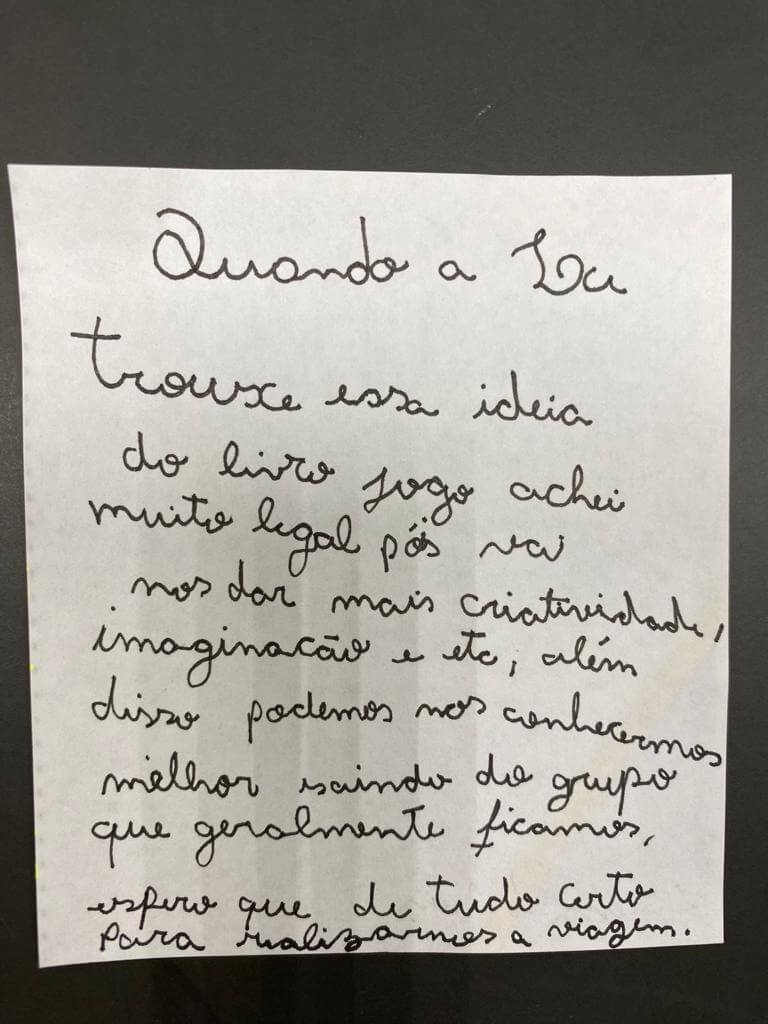 Quando a Lu
trouxe essa ideia
do livro jogo achei
muito legal pós vai
nos dar mais criatividade,
imaginacão e etc, além
disso podemos nos conhecermos
melhor saindo do grupo
que geralmente ficamos,
espero que de tudo certo
para realizarmos a viagem.